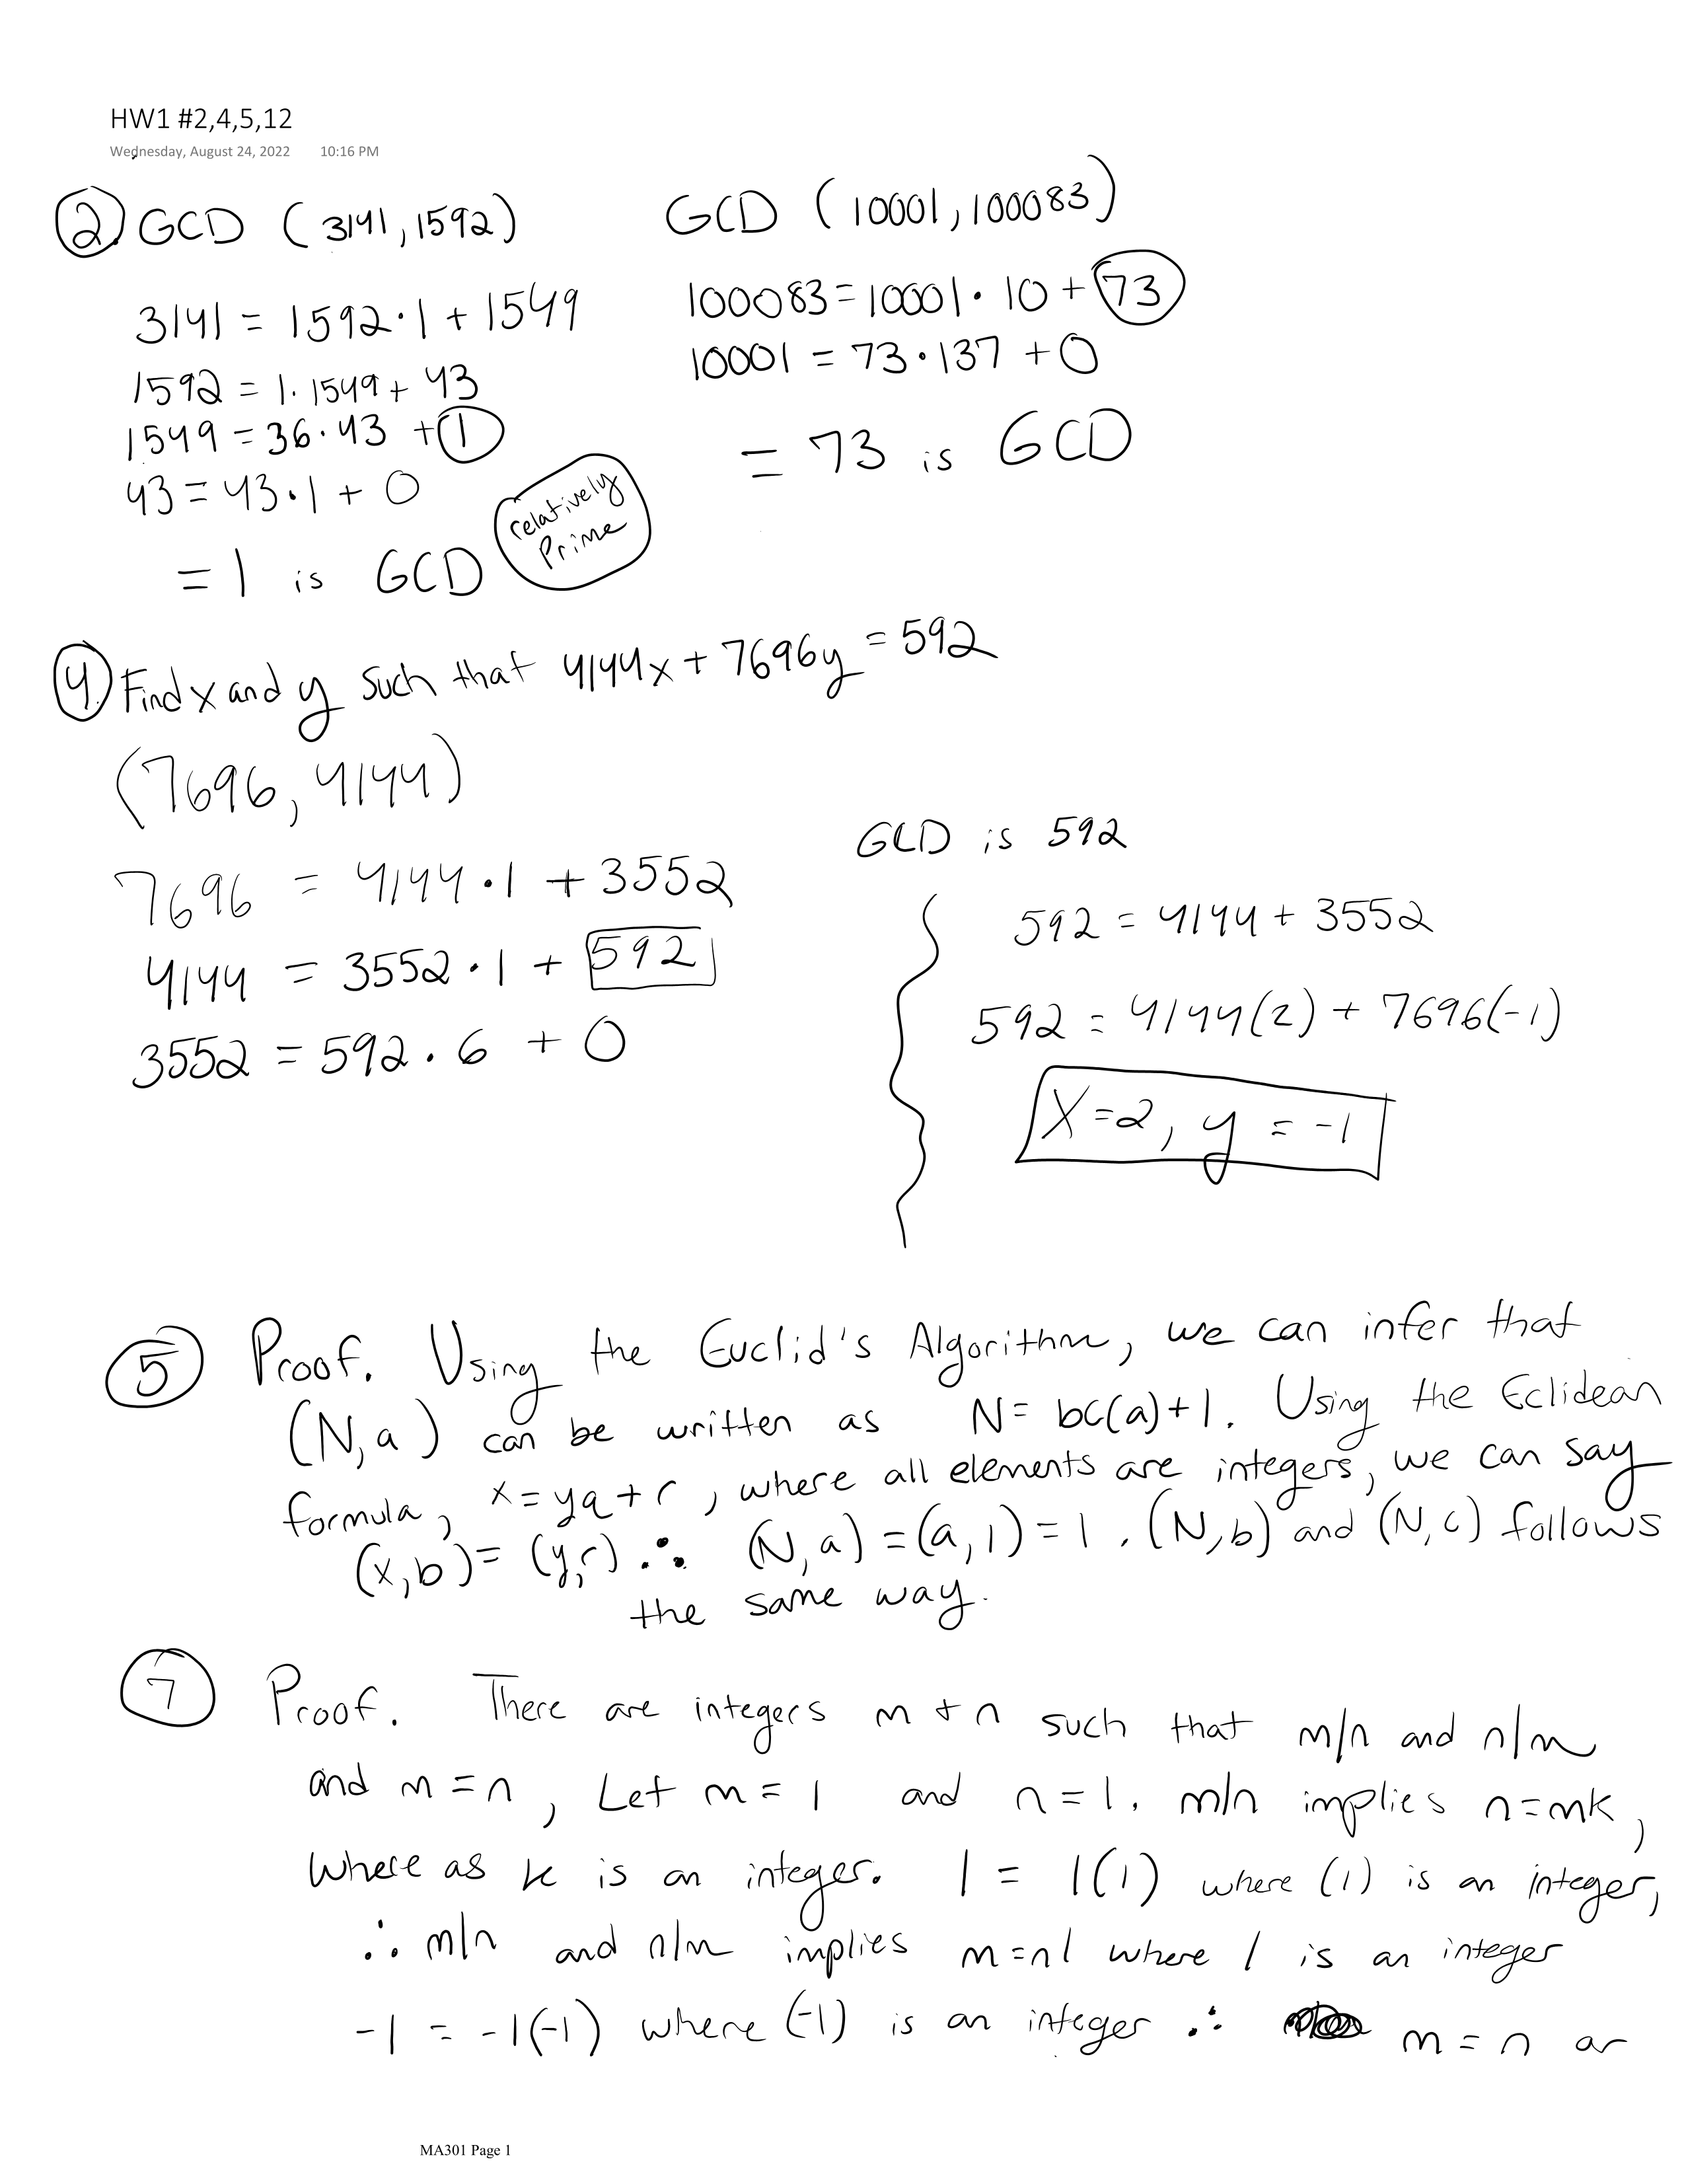 HW1 #2,4,5,12
Wednesday, August 24, 2022 10:16 PM
2. GCD (3141, 1592)
3141 = 1592·1 + 1549
1592 = 1·1549 + 43
1549 = 36·43 + 1
43 = 43·1 + 0
= 1 is GCD
relatively
Prime
GCD (10001, 100083)
100083 = 10001·10 + 73
10001 = 73·137 + 0
= 73 is GCD
4. Find x and y such that 4144x + 7696y = 592
(7696, 4144)
7696 = 4144·1 + 3552
4144 = 3552·1 + 592
3552 = 592·6 + 0
GCD is 592
592 = 4144 + 3552
592 = 4144(2) + 7696(-1)
X=2, y = -1
5 Proof. Using the Euclid's Algorithm, we can infer that
(N, a) can be written as N = bc(a)+1. Using the Eclidean
formula, x = yq + r, where all elements are integers, we can say
(x,b) = (y,r) ∴ (N,a) = (a,1) = 1. (N,b) and (N,c) follows
the same way.
7 Proof. There are integers m + n such that m/n and n/m
and m = n, Let m = 1 and n = 1. m/n implies n = mk,
where as k is an integer. 1 = 1(1) where (1) is an integer,
∴ m/n and n/m implies m = nl where l is an integer
-1 = -1(-1) where (-1) is an integer ∴ m = n or
MA301 Page 1